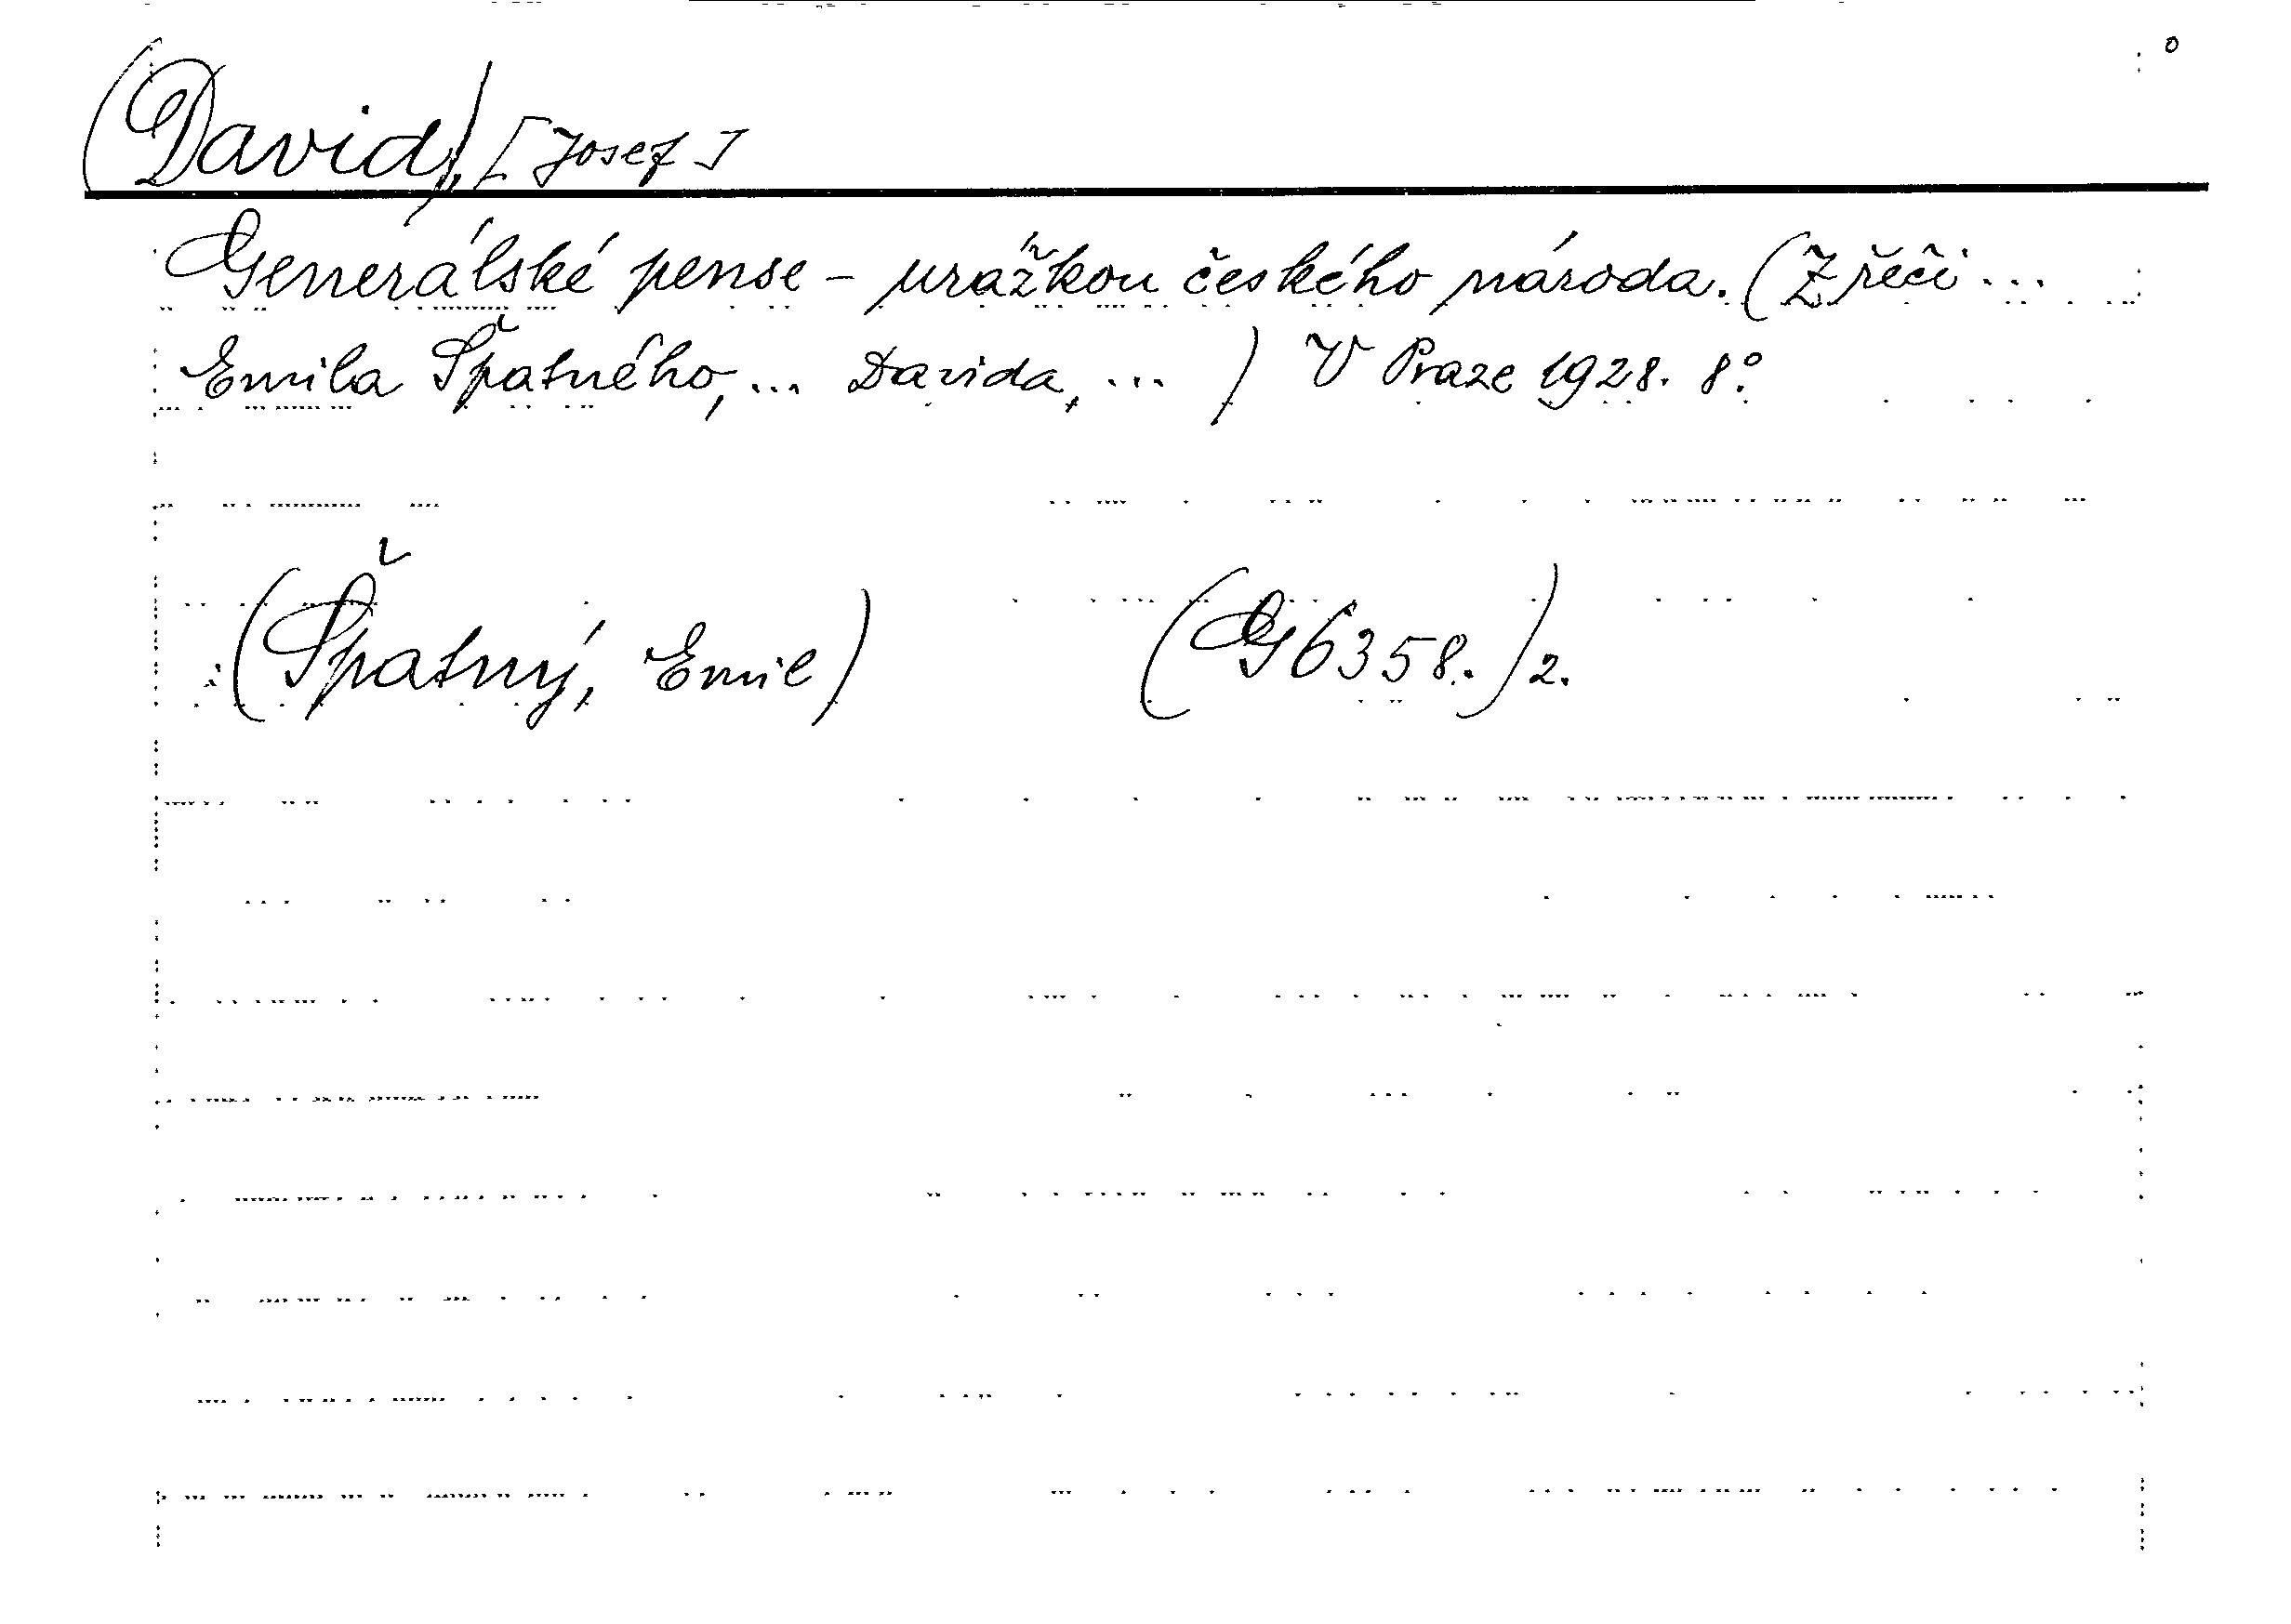 (David), [Josef]
Generálské pense - urážkou českého národa. (Z řečí ...
Emila Špatného, ... Davida, ... ) V Praze 1928. 8°.
(Špatný, Emil) (G 6358.) 2.